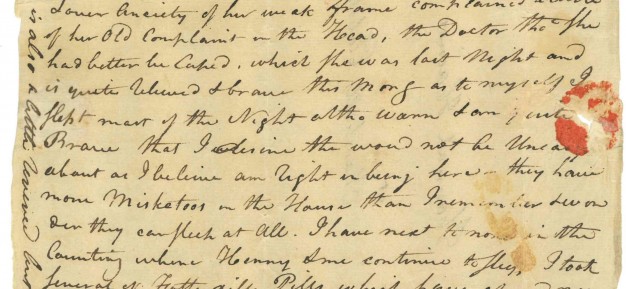 Lower Anxiety of her weak frame complained
of her Old Complaint in the Head, the Doctor tho.t She
had better be Cuped, which she was last Night and
is quite relieved & brave this Morng as to myself I
slept most of the Night altho warm & am quite
Brave that I desire the would not be
about as I believe am Right in being here – they have
more Misketoes in the House than I remember & won
der they can sleep at All. I have next to none in the
Counting where Henny & me continue to sleep I took
several of Pills which have
is also a little